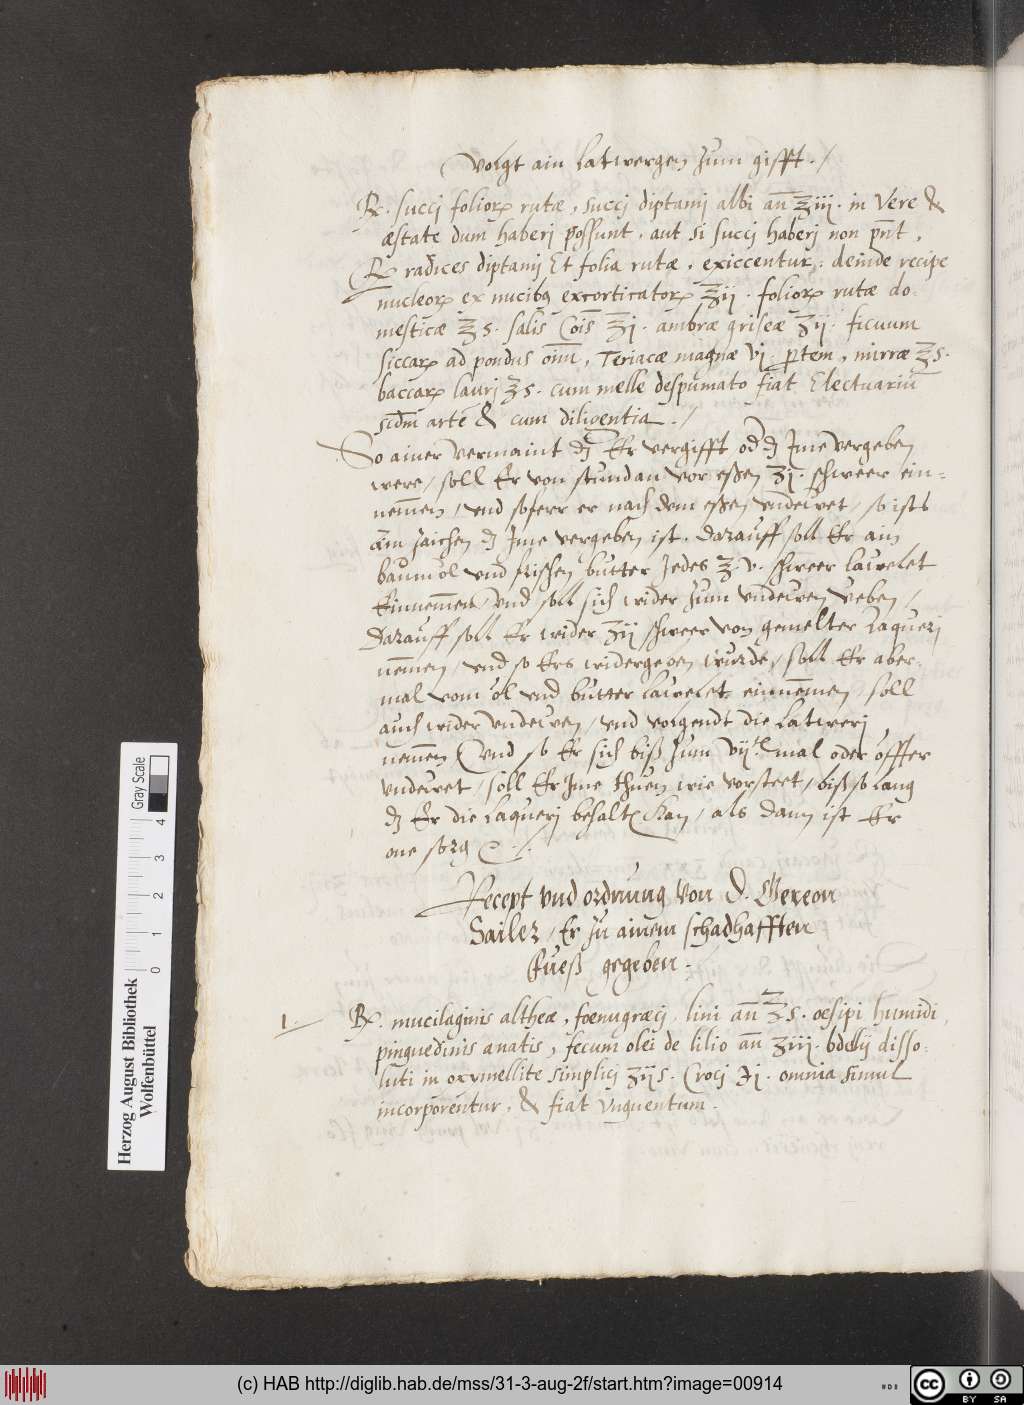 Volgt ain Latwergen zum gifft ./
℞. succj foliorꝝ rutæ, succj diptamj albi an̄ ʒiij. in Vere &
æstate dum haberj possunt. aut si succj haberj non pn̄t,
℞ radices diptamj Et folia rutæ. exiccentur: deinde recipe
nucleorꝝ ex nucibꝫ excorticatorꝝ ʒij. foliorꝝ rutæ do-
mesticæ ʒs. salis Cōis ʒj. ambræ griseæ ʒij. ficuum
siccarꝝ ad pondus oīm, Teriacæ magnæ vj. ꝑtem, mirræ ʒs.
baccarꝝ laurj ʒs. cum melle despumato fiat Electuariū
scdm arte & cum diligentia ./
So ainer vermaint dz Er vergifft, od dz Jme vergeben
were, soll Er von stundan vor eßen ʒj. schweer ein-
nem̄en, vnd soferr er nach dem eßen vndewet, so ists
ain zaichen dz Jme vergeben ist. Darauff soll Er ain
baumöl vnd frischen butter Jedes ʒ.v. schweer lawlet
Einnem̄en, vnd soll sich wider zum vndewen yeben,
Darauff soll Er wider ʒij schweer von gemelter Laquerj
nem̄en, vnd so Ers widergeben wurde, soll Er aber-
mal vom öl vnd butter lawlet einnem̄en, soll
auch wider vndewen, vnd volgendt die Latwerj
nem̄en, vnd so Er sich biß zum vijt mal oder öffter
vndewet, soll Er Jme thuen wie vorsteet, biß so lang
dz Er die Laquerj behaltē kan, als dann ist Er
one sorg ./.
Recept vnd ordnung von D. Gereon
Sailer, Er zu ainem schadhafften
Fueß gegeben.
1. ℞. mucilaginis altheæ, fœnugræcj, lini an̄ ʒs. oesipi humidi,
pinguedinis anatis, fecum olei de lilio an̄ ʒiij. bdelij disso-
luti in oxymellite simplicj ʒijs. Crocj ℈j. omnia simul
incorporentur, & fiat vnguentum.
Herzog August Bibliothek
Wolfenbüttel
0 1 2 3 4
Gray Scale
(c) HAB http://diglib.hab.de/mss/31-3-aug-2f/start.htm?image=00914
cc BY SA